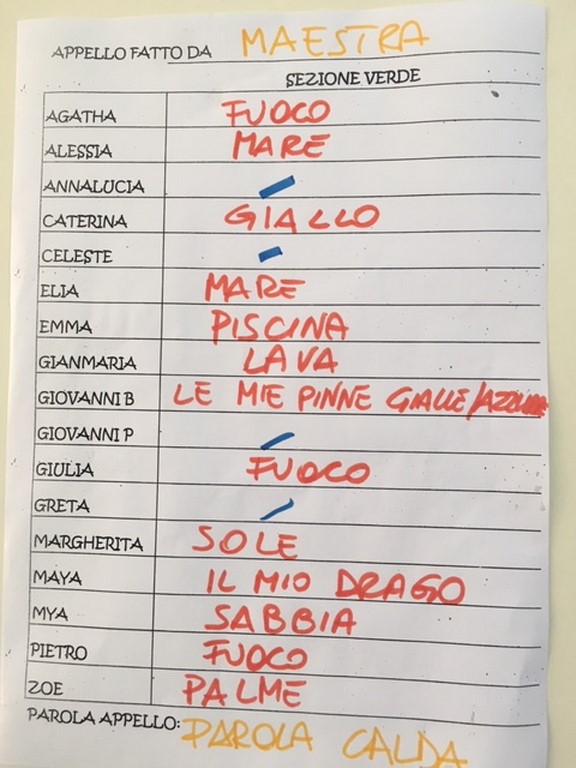 APPELLO FATTO DA MAESTRA
SEZIONE VERDE
AGATHA FUOCO
ALESSIA MARE
ANNALUCIA
CATERINA GIALLO
CELESTE
ELIA MARE
EMMA PISCINA
GIANMARIA LAVA
GIOVANNI B LE MIE PINNE GIALLE/
GIOVANNI P
GIULIA FUOCO
GRETA
MARGHERITA SOLE
MAYA IL MIO DRAGO
MYA SABBIA
PIETRO FUOCO
ZOE PALME
PAROLA APPELLO: PAROLA CALDA